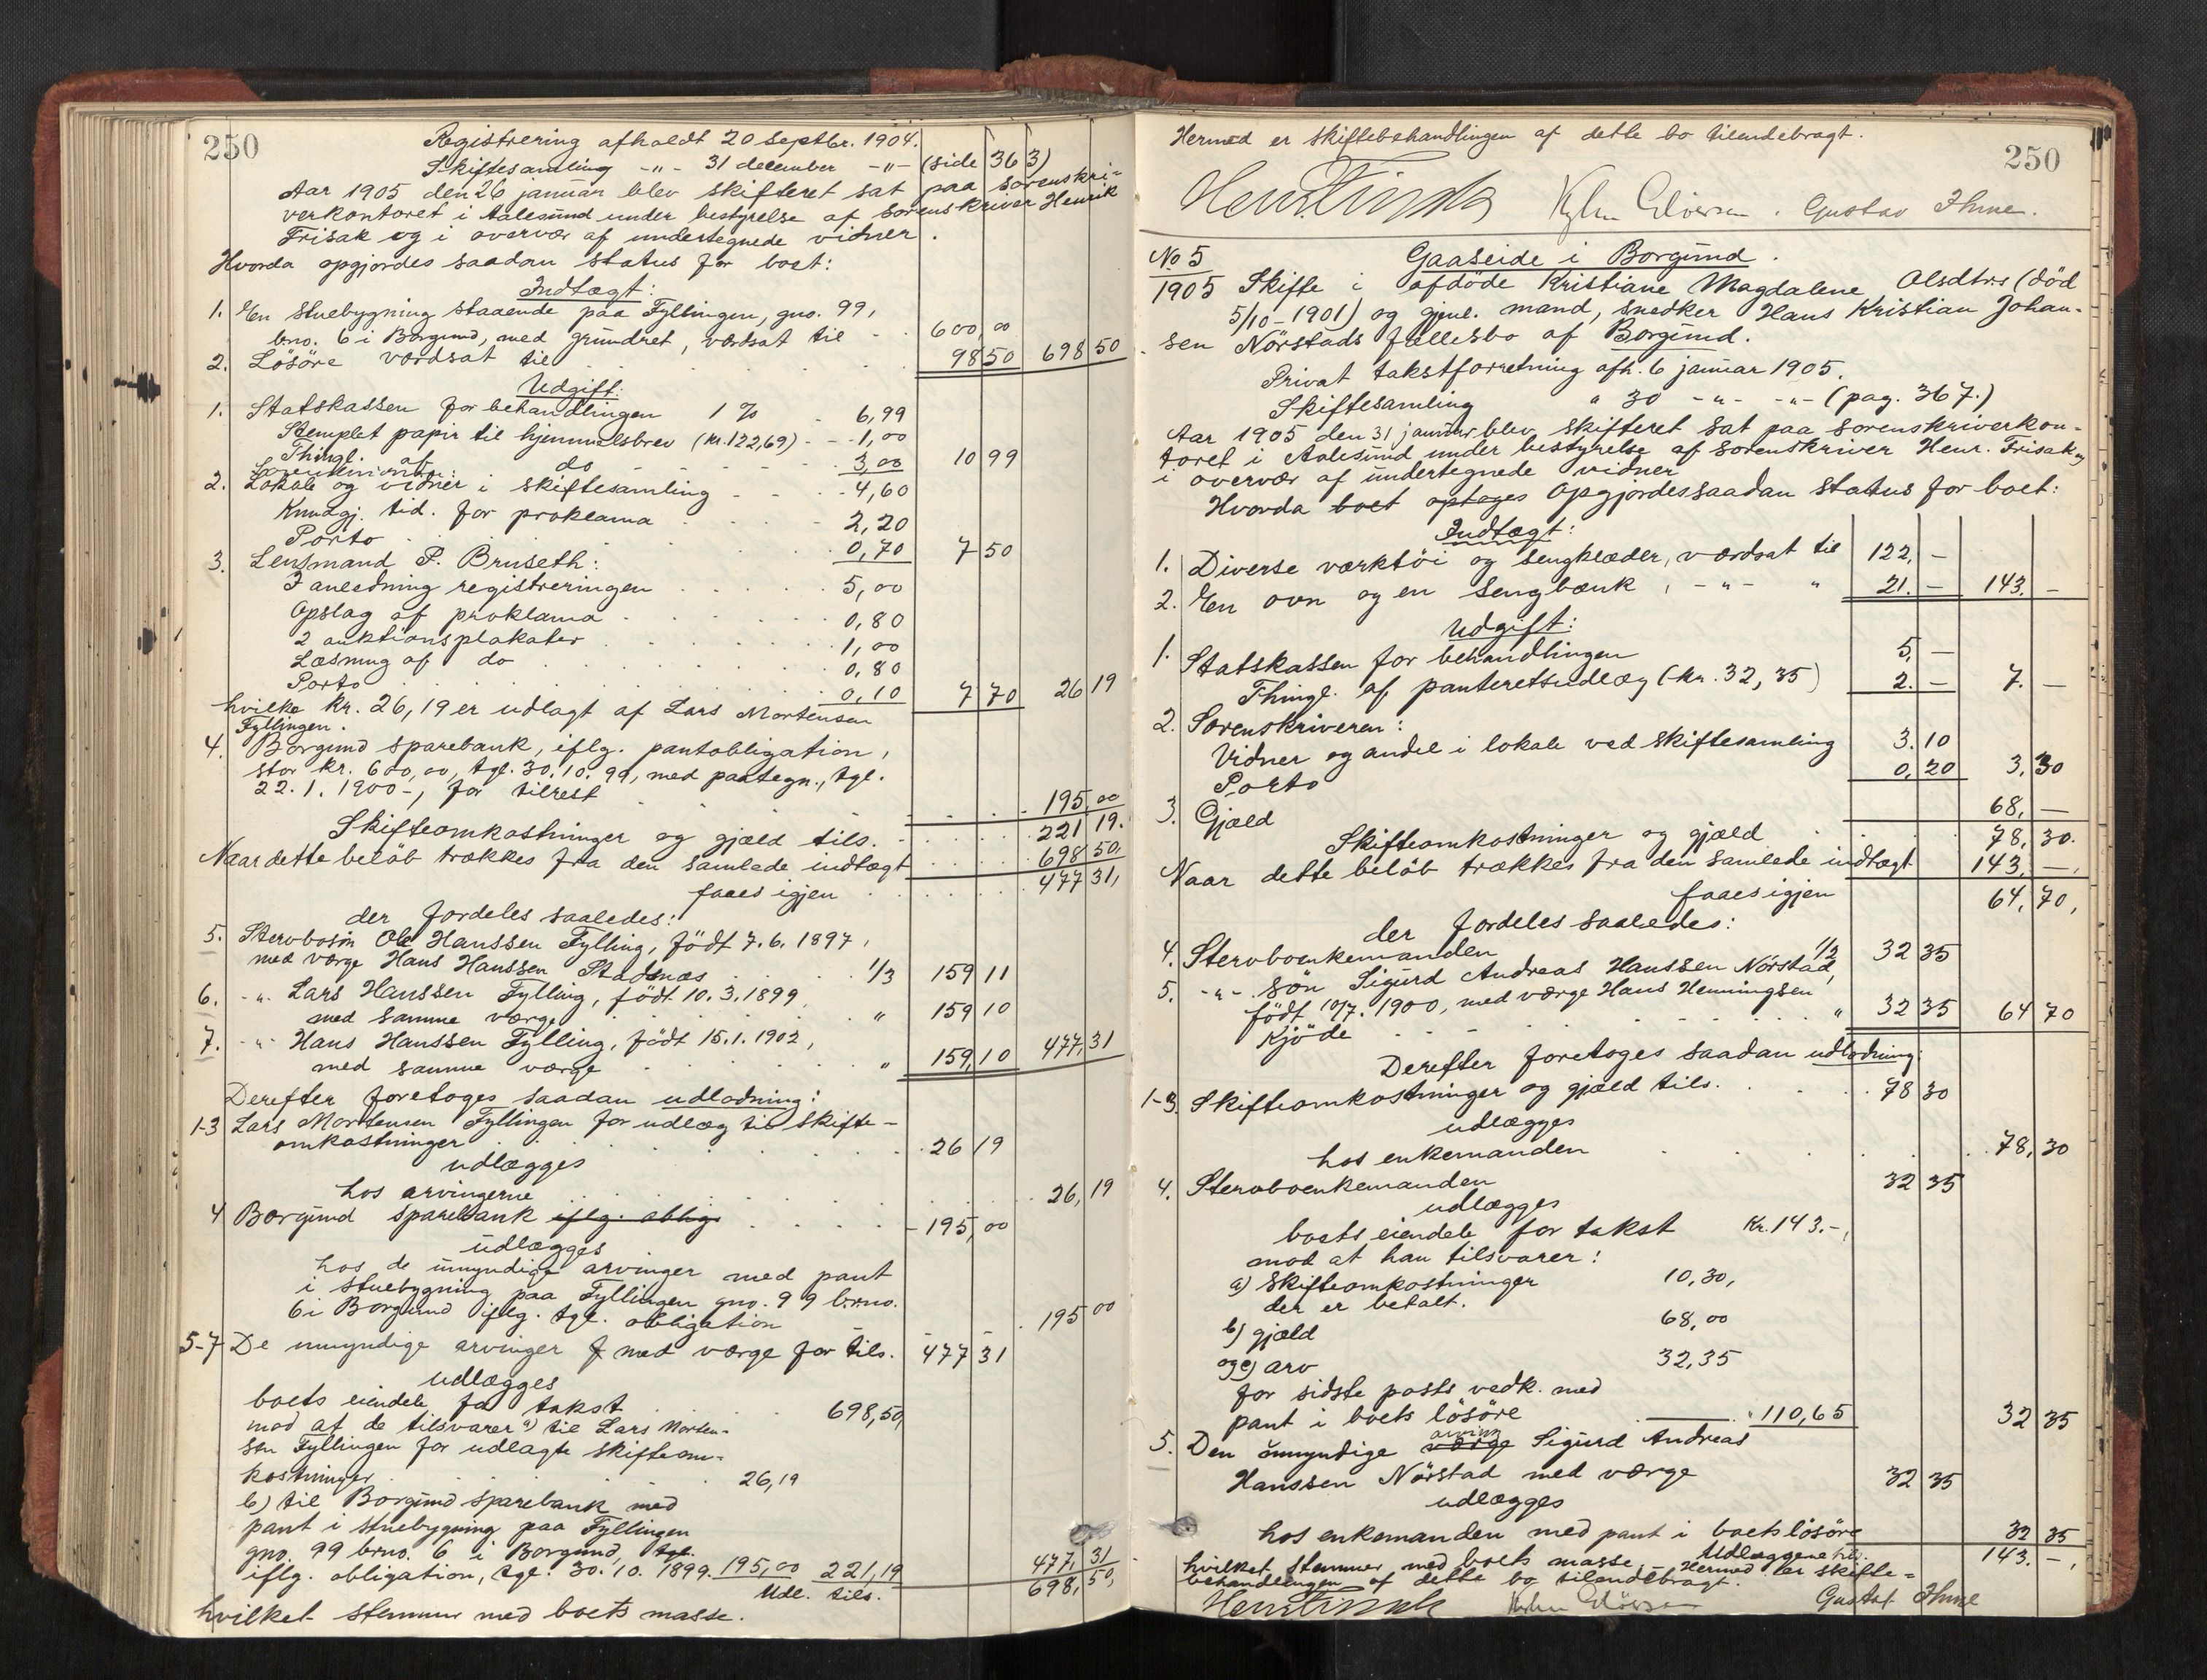 250
Registrering afholdt 20 septbr. 1904.
Skiftesamling -"- 31 december -"- (side 363)
Aar 1905 den 26 januar blev skifteret sat paa sorenskri-
verkontoret i Aalesund under bestyrelse af sorenskriver Henrik
Frisak og i overvær af undertegnede vidner.
Hvorda opgjordes saadan status for boet:
Indtægt:
1. En stuebygning staaende paa Fyllingen, gno. 99,
brno. 6 i Borgund, med grundret, værdsat til - 600,00
2. Lösöre værdsat til 98 50 698 50
Udgift:
1. Statskassen for behandlingen 1 % - 6,99
Stemplet papir til hjemmelsbrev (kr. 122,69) - - 1,00
Thingl. af do - - - - 3,00 10 99
2. Sorenskriveren:
Lokale og vidner i skiftesamling - - - 4,60
Kundgj. tid. for proklama 2,20
Porto 0,70 7 50
3. Lensmand P. Bruseth:
I anledning registreringen 5,00
Opslag af proklama 0,80
2 auktionsplakater 1,00
Læsning af do 0,80
Porto 0,10 7 70 26 19
hvilke kr. 26,19 er udlagt af Lars Mortensen
Fyllingen.
4. Borgund sparebank, iflg. pantobligation,
stor kr. 600,00, tgl. 30.10.99, med paategn., tgl.
22.1.1900-, for tilrest 195,00
Skifteomkostninger og gjæld tils. 221 19.
Naar dette belöb trækkes fra den samlede indtægt 698 50,
faaes igjen 477 31,
der fordeles saaledes:
5. Stervbosön Ole Hanssen Fylling, född 7.6.1897,
med værge Hans Hanssen Stadsnæs 1/3 159 11
6. -"- Lars Hanssen Fylling, född 10.3.1899
med samme værge " 159 10
7. -"- Hans Hanssen Fylling, född 15.1.1902,
med samme værge " 159,10 477,31
Derefter foretoges saadan udlodning:
1-3 Lars Mortensen Fyllingen for udlæg til skifte-
omkostninger 26 19
udlægges
hos arvingerne 26,19
4 Borgund sparebank iflg. oblig. 195,00
udlægges
hos de umyndige arvinger med pant
i stuebygning paa Fyllingen gno. 99 brno.
6 i Borgund iflg. tgl. obligation 195 00
5-7 De umyndige arvinger med værge for tils. 477 31
udlægges
boets eiendele for takst 698,50,
mod at de tilsvarer a) til Lars Morten-
sen Fyllingen for udlagte skifteom-
kostninger 26,19
b) til Borgund sparebank med
pant i stuebygning paa Fyllingen
gno. 99 brno. 6 i Borgund, tgl.
iflg. obligation, tgl. 30.10.1899. 195,00 221,19 477,31
Udl. tils. 698,50,
hvilket stemmer med boets masse.
Hermed er skiftebehandlingen af dette bo tilendebragt.
250
Gustav Ihme.
No 5
1905
Gaaseide i Borgund.
Skifte i afdöde Kristiane Magdalene Olsdtrs (död
5/10-1901) og gjenl. mand, snedker Hans Kristian Johan-
sen Nörstads fællesbo af Borgund.
Privat takstforretning afh. 6 januar 1905.
Skiftesamling " 30 -"- -"- (pag. 367.)
Aar 1905 den 31 januar blev skifteret sat paa sorenskriverkon-
toret i Aalesund under bestyrelse af sorenskriver Henr. Frisak og
i overvær af undertegnede vidner
Hvorda boet optoges Opgjordes saadan status for boet:
Indtægt:
1. Diverse værktöi og sengklæder, værdsat til 122, -
2. En ovn og en sengbænk, -"- " 21. - 143. -
Udgift:
1. Statskassen for behandlingen 5, -
Thingl. af panteretsudlæg (kr. 32,35) 2. - 7. -
2. Sorenskriveren:
Vidner og andel i lokale ved skiftesamling 3.10
Porto 0,20 3,30
3. Gjæld 68, -
Skifteomkostninger og gjæld 78,30.
Naar dette belöb trækkes fra den samlede indtægt 143, -,
faaes igjen 64,70,
der fordeles saaledes:
4. Stervboenkemanden 1/2 32 35
5. -"- sön Sigurd Andreas Hanssen Nörstad,
född 10/7. 1900, med værge Hans Henningsen
Kjöde " 32 35 64 70
Derefter foretoges saadan udlodning:
1-3. Skifteomkostninger og gjæld tils. 78 30
udlægges
hos enkemanden 78,30
4. Stervboenkemanden 32 35
udlægges
boets eiendele for takst Kr. 143.-,
mod at han tilsvarer:
a) skifteomkostninger 10,30,
der er betalt.
b) gjæld 68,00
og c) arv 32,35
for sidste posts vedk. med
pant i boets lösöre 110,65 32 35
5. Den umyndige værge arving Sigurd Andreas
Hanssen Nörstad med værge 32 35
udlægges
hos enkemanden med pant i boets lösöre 32 35
Udlæggene tils. 143. -,
hvilket stemmer med boets masse. - Hermed er skifte-
behandlingen af dette bo tilendebragt.
Gustav Ihme